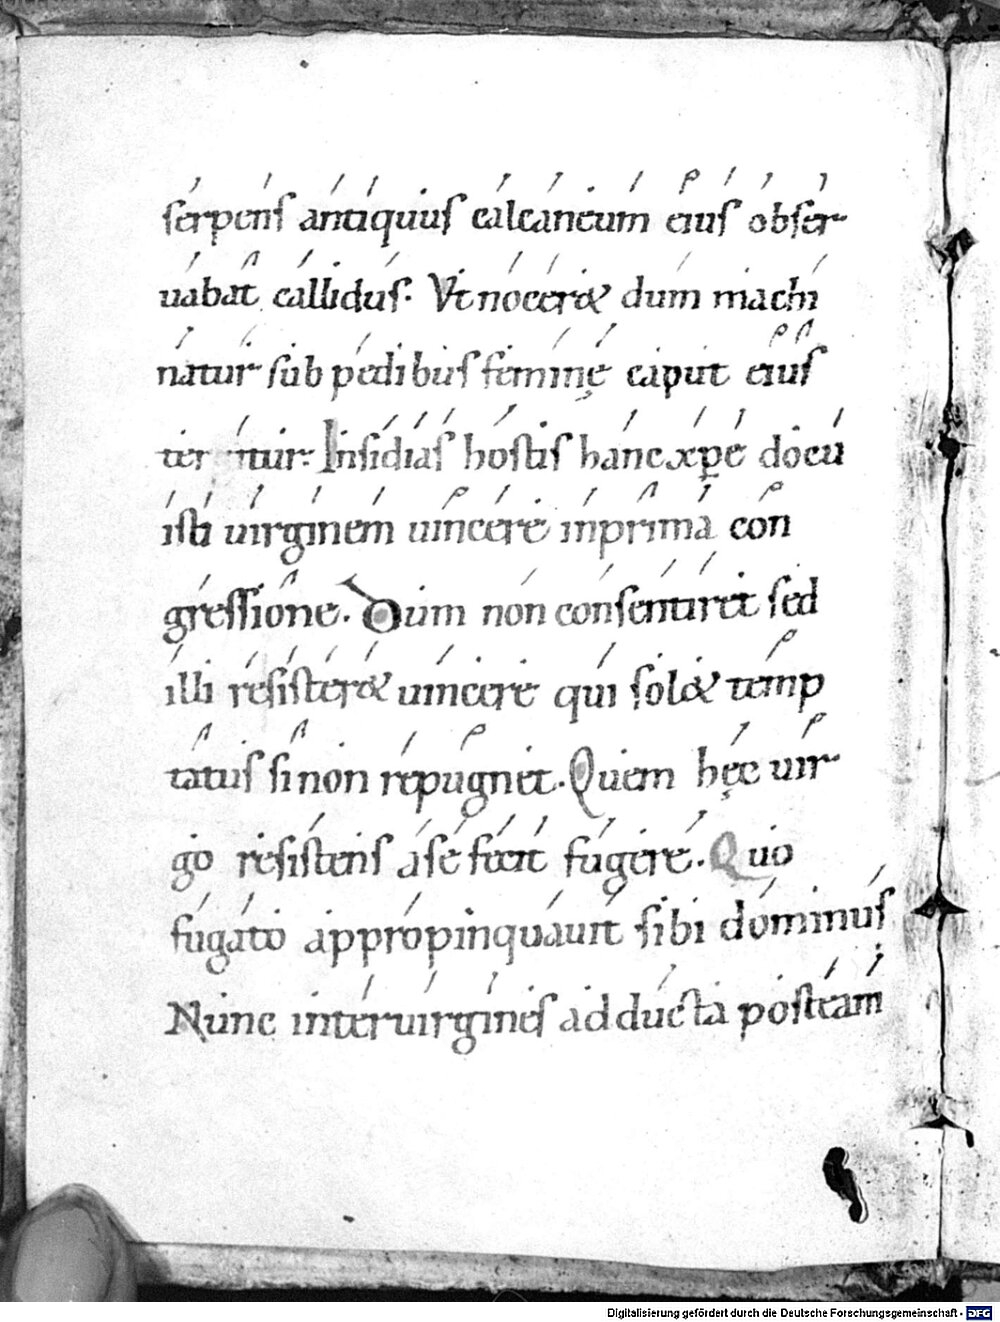 serpens antiquus calcaneum eius obser
uabat callidus. Vt nocer& dum machi
natur sub pedibus feminę caput eius
ter tur. Insidias hostis hanc xpe docu
isti uirginem uincere inprima con
gressione. Dum non consentiret sed
illi resister& uincere qui sol& temp
tatus si non repugnet. Quem hęc uir
go resistens a se fecit fugere. Quo
fugato appropinquauit sibi dominus
Nunc inter uirgines adducta posteam
Digitalisierung gefördert durch die Deutsche Forschungsgemeinschaft - DFG